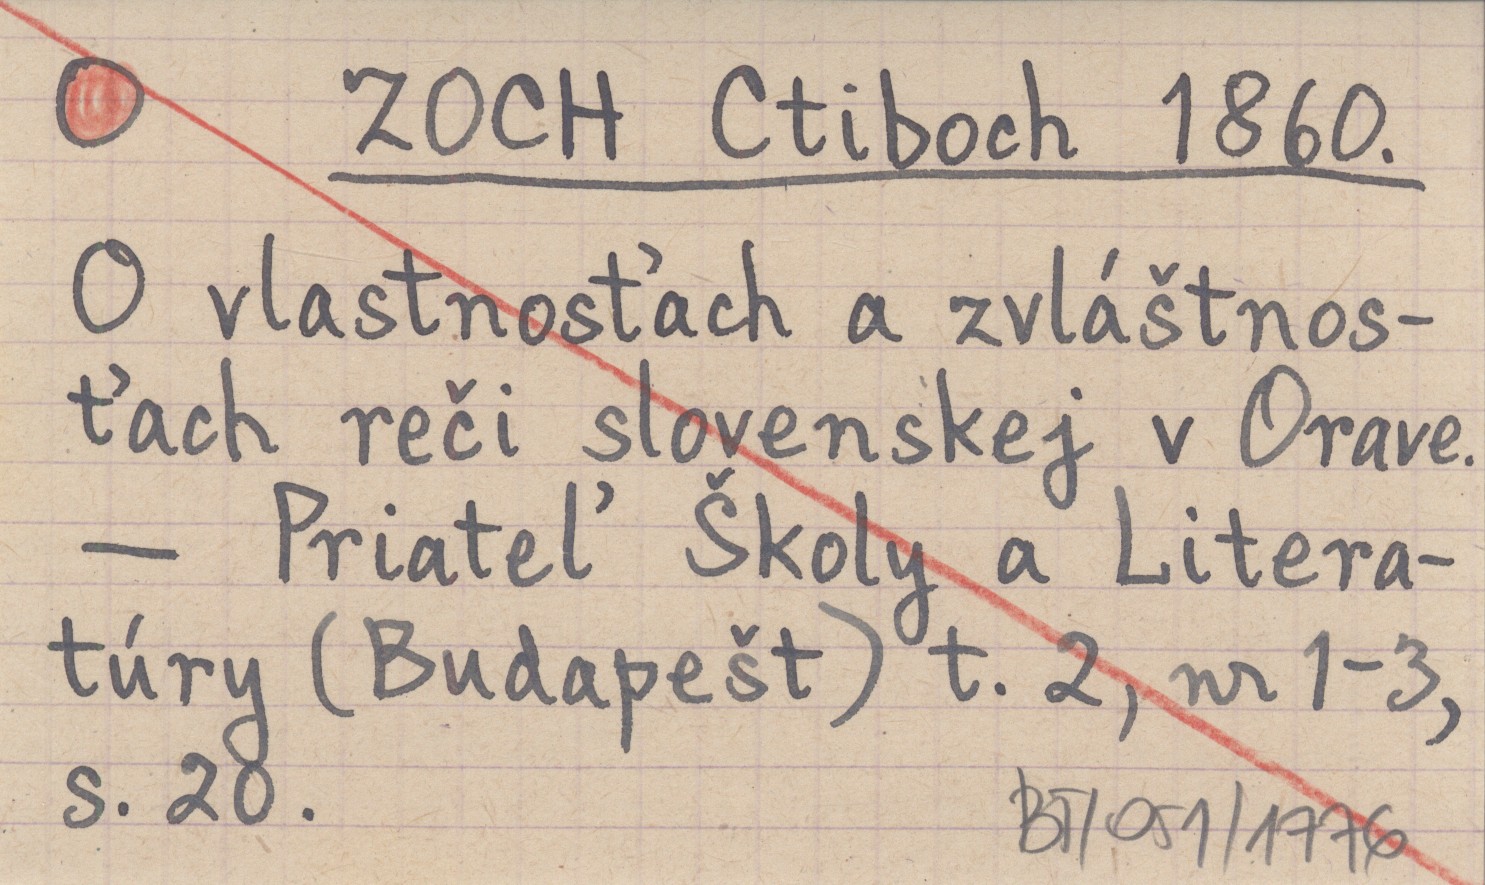 ZOCH Ctiboch 1860.
O vlastnosťach a zvláštnos-
ťach reči slovenskej v Orave.
— Priateľ Školy a Litera-
túry (Budapešt) t. 2, nr 1-3,
s. 20.
BT/051/1776